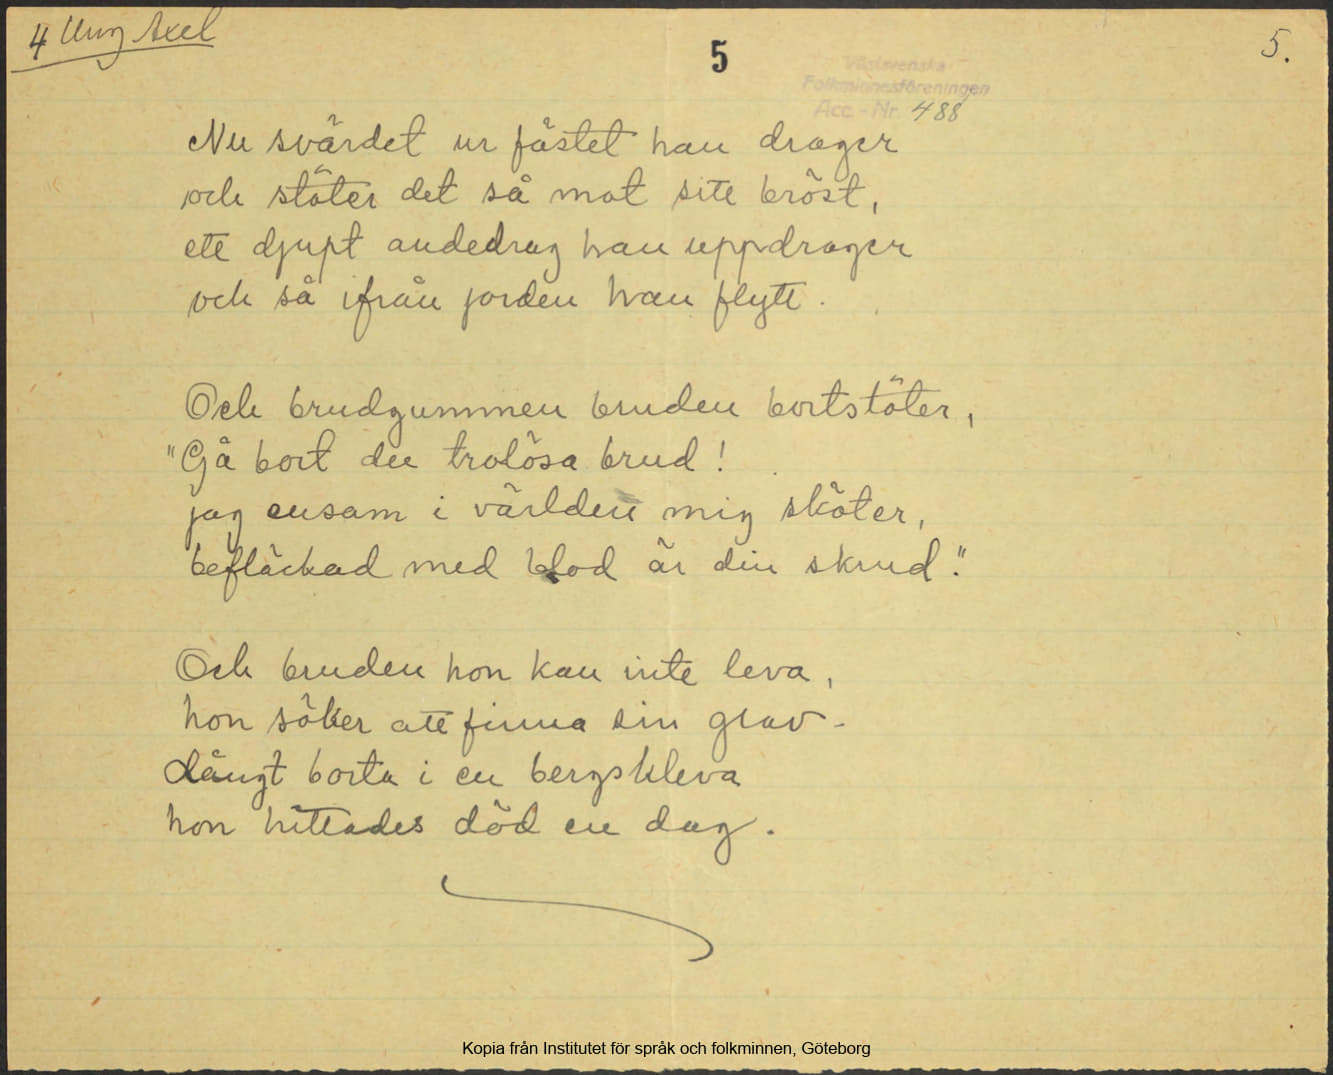 4 Ung Axel
5
5.
Västsvenska
Folkminnesföreningen
Acc.-Nr. 488
Nu svärdet ur fästet han drager
och stöter det så mot sitt bröst,
ett djupt andedrag han uppdrager
och så ifrån jorden han flytt.
Och brudgummen bruden bortstöter,
"Gå bort du trolösa brud!
jag ensam i världen mig sköter,
befläckad med blod är din skrud."
Och bruden hon kan inte leva,
hon söker att finna sin grav -
Långt borta i en bergskleva
hon hittades död en dag.
Kopia från Institutet för språk och folkminnen, Göteborg